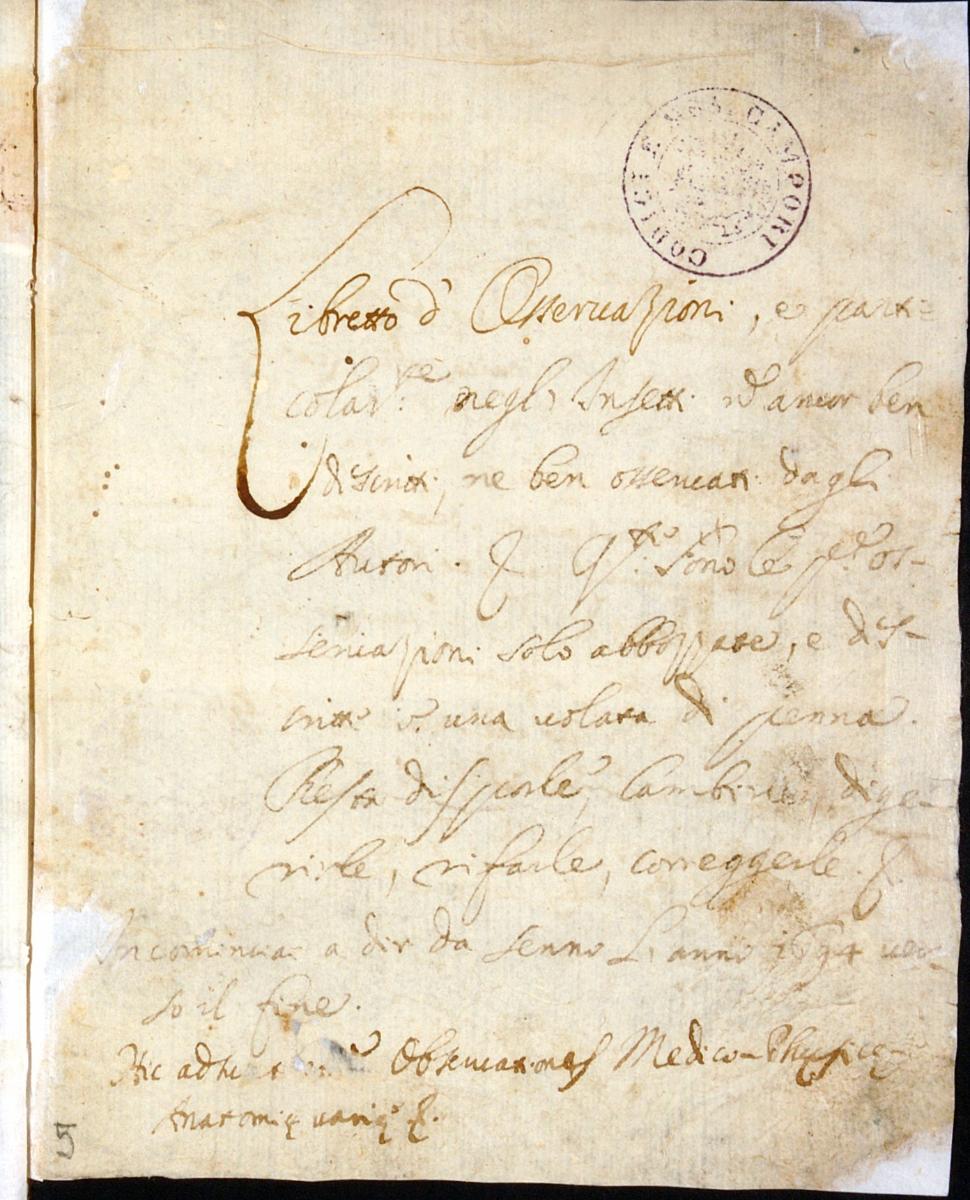 CODICI E MSS. CAMPORI
Libretto d' Osseruazioni, e parti=
colar.te negl' Insetti nõ ancor ben
discritti, ne ben osseruati dagli
Autori. Q.te sono le p.e os-
seruazioni solo abbozzate, e dis-
critte una uolata di penna.
Resta disporle, dige-
rirle, rifarle, correggerle.
Incominciai a dir da senno l'anno 1694 uer-
so il fine.
Hic Obseruationes Medico-Physicę
Anatomię uarię
5